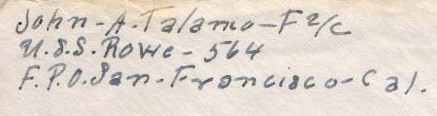 John-A-Talamo-F2/c
U.S.S. Rowe-564
F.P.O. San-Francisco-Cal.